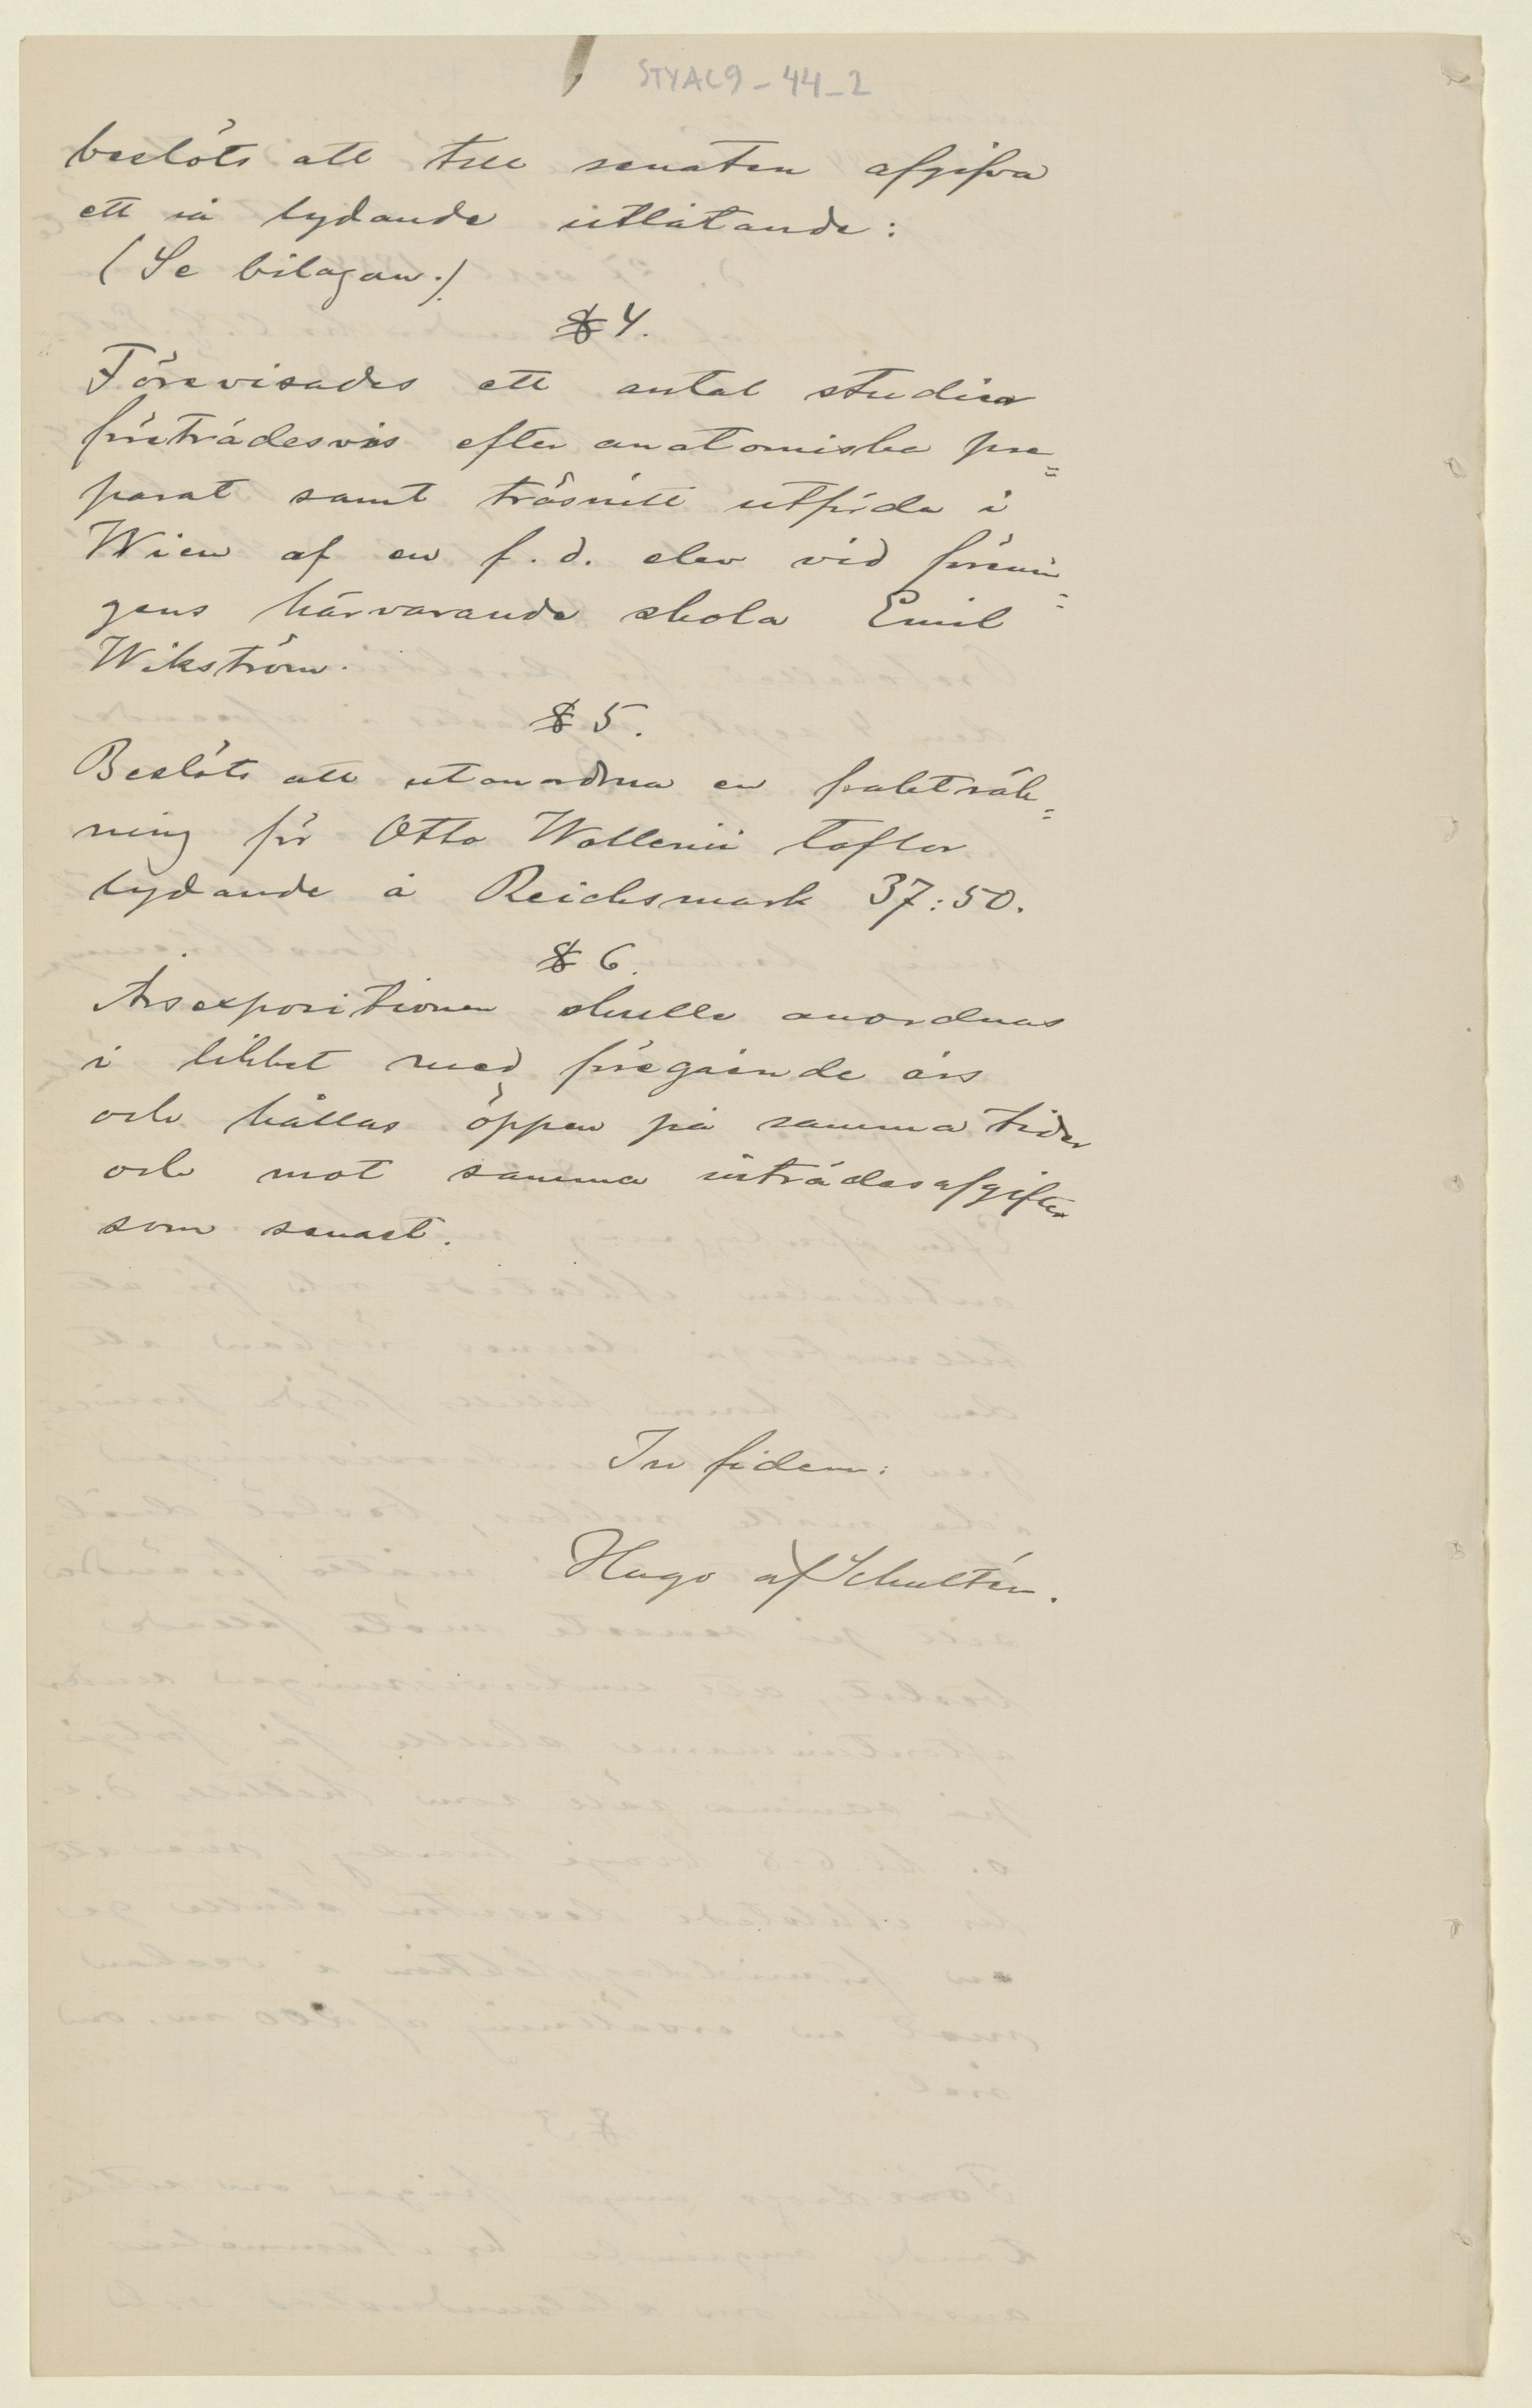 STYAL9-44-2
beslöts att till senaten afgifva
ett så lydande utlåtande:
(Se bilagan.)
§ 4.
Förevisades ett antal studier
företrädesvis efter anatomiska pre=
parat samt träsnitt utförda i
Wien af en f.d. elev vid förenin=
gens härvarande skola Emil
Wikström.
§ 5.
Beslöts att utanordna en frakträk=
ning för Otto Wallenii taflor
lydande å Reichsmark 37:50.
§ 6.
Årsexpositionen skulle anordnas
i likhet med föregående års
och hållas öppen på samma tider
och mot samma inträdesafgifter
som senast.
In fidem:
Hugo af Schultén.